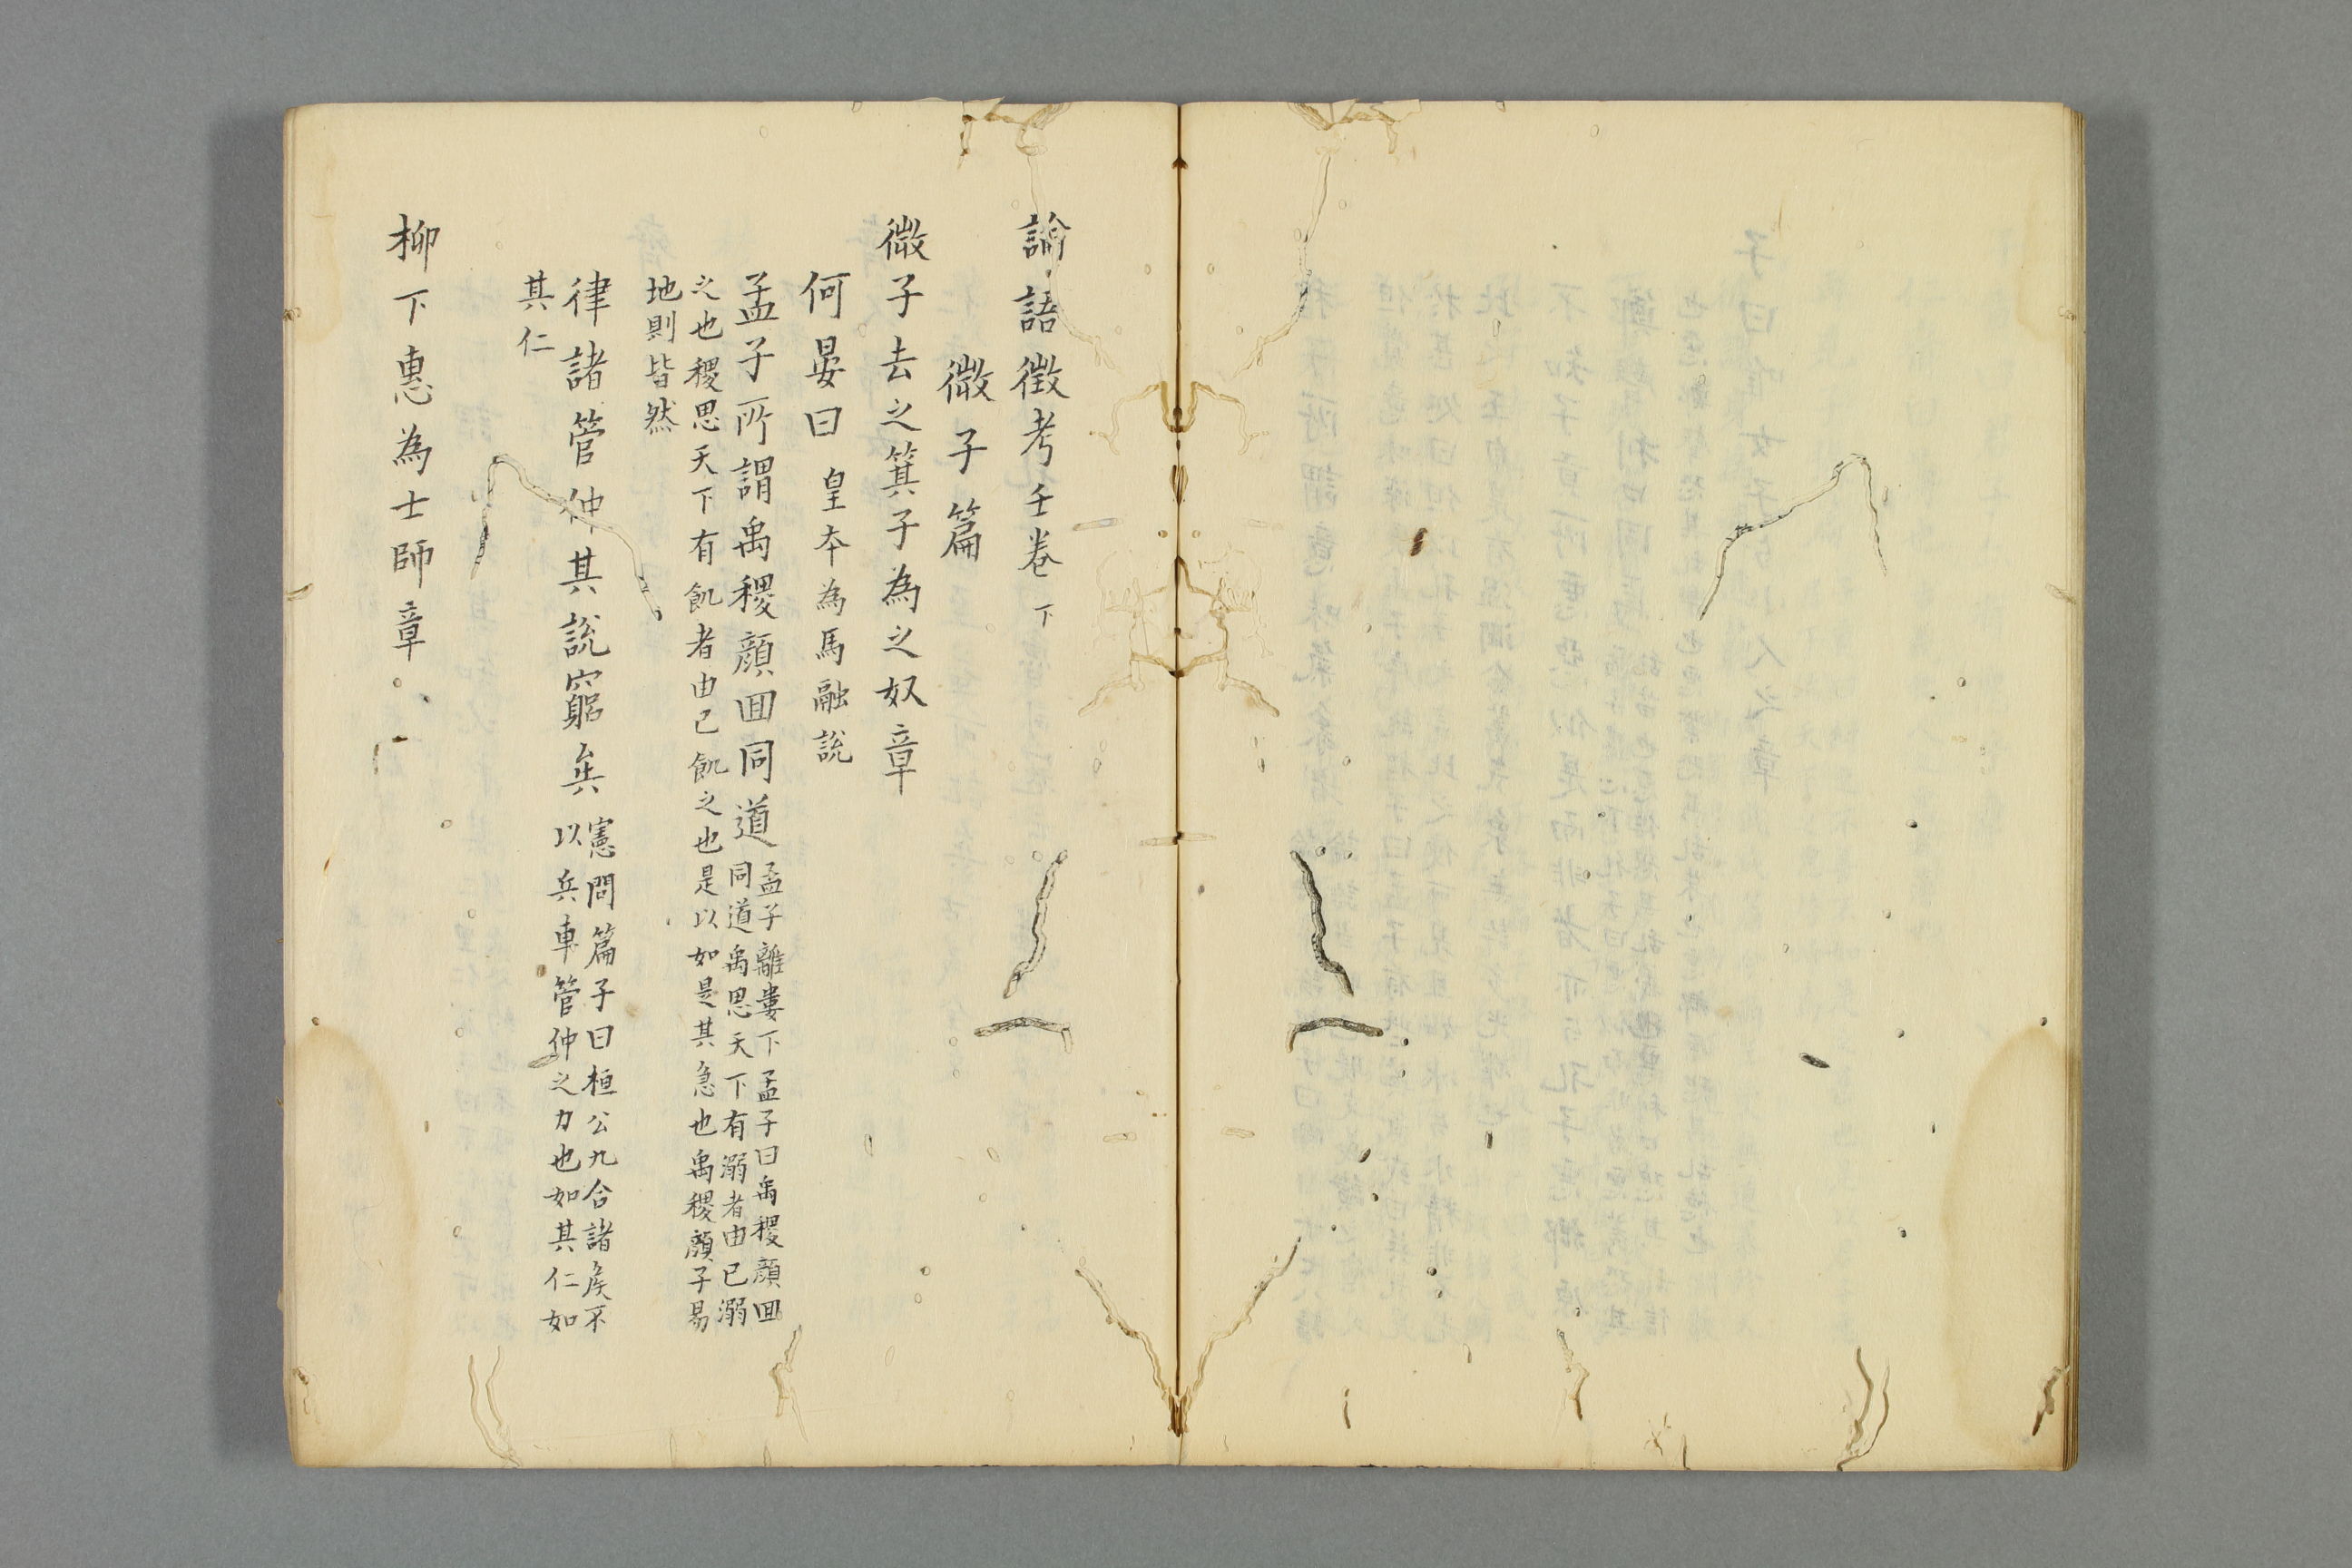 論語徴考壬卷下
微子篇
微子去之箕子為之奴章
何晏曰皇本為馬融說
孟子所謂禹稷顔囬同道孟子離婁下孟子曰禹稷顔囬
同道禹思天下有溺者由己溺
之也稷思天下有飢者由己飢之也是以如是其急也禹稷顔子易
地則皆然
律諸管仲其說窮矣憲問篇子曰桓公九合諸侯不
以兵車管仲之力也如其仁如
其仁
柳下惠為士師章